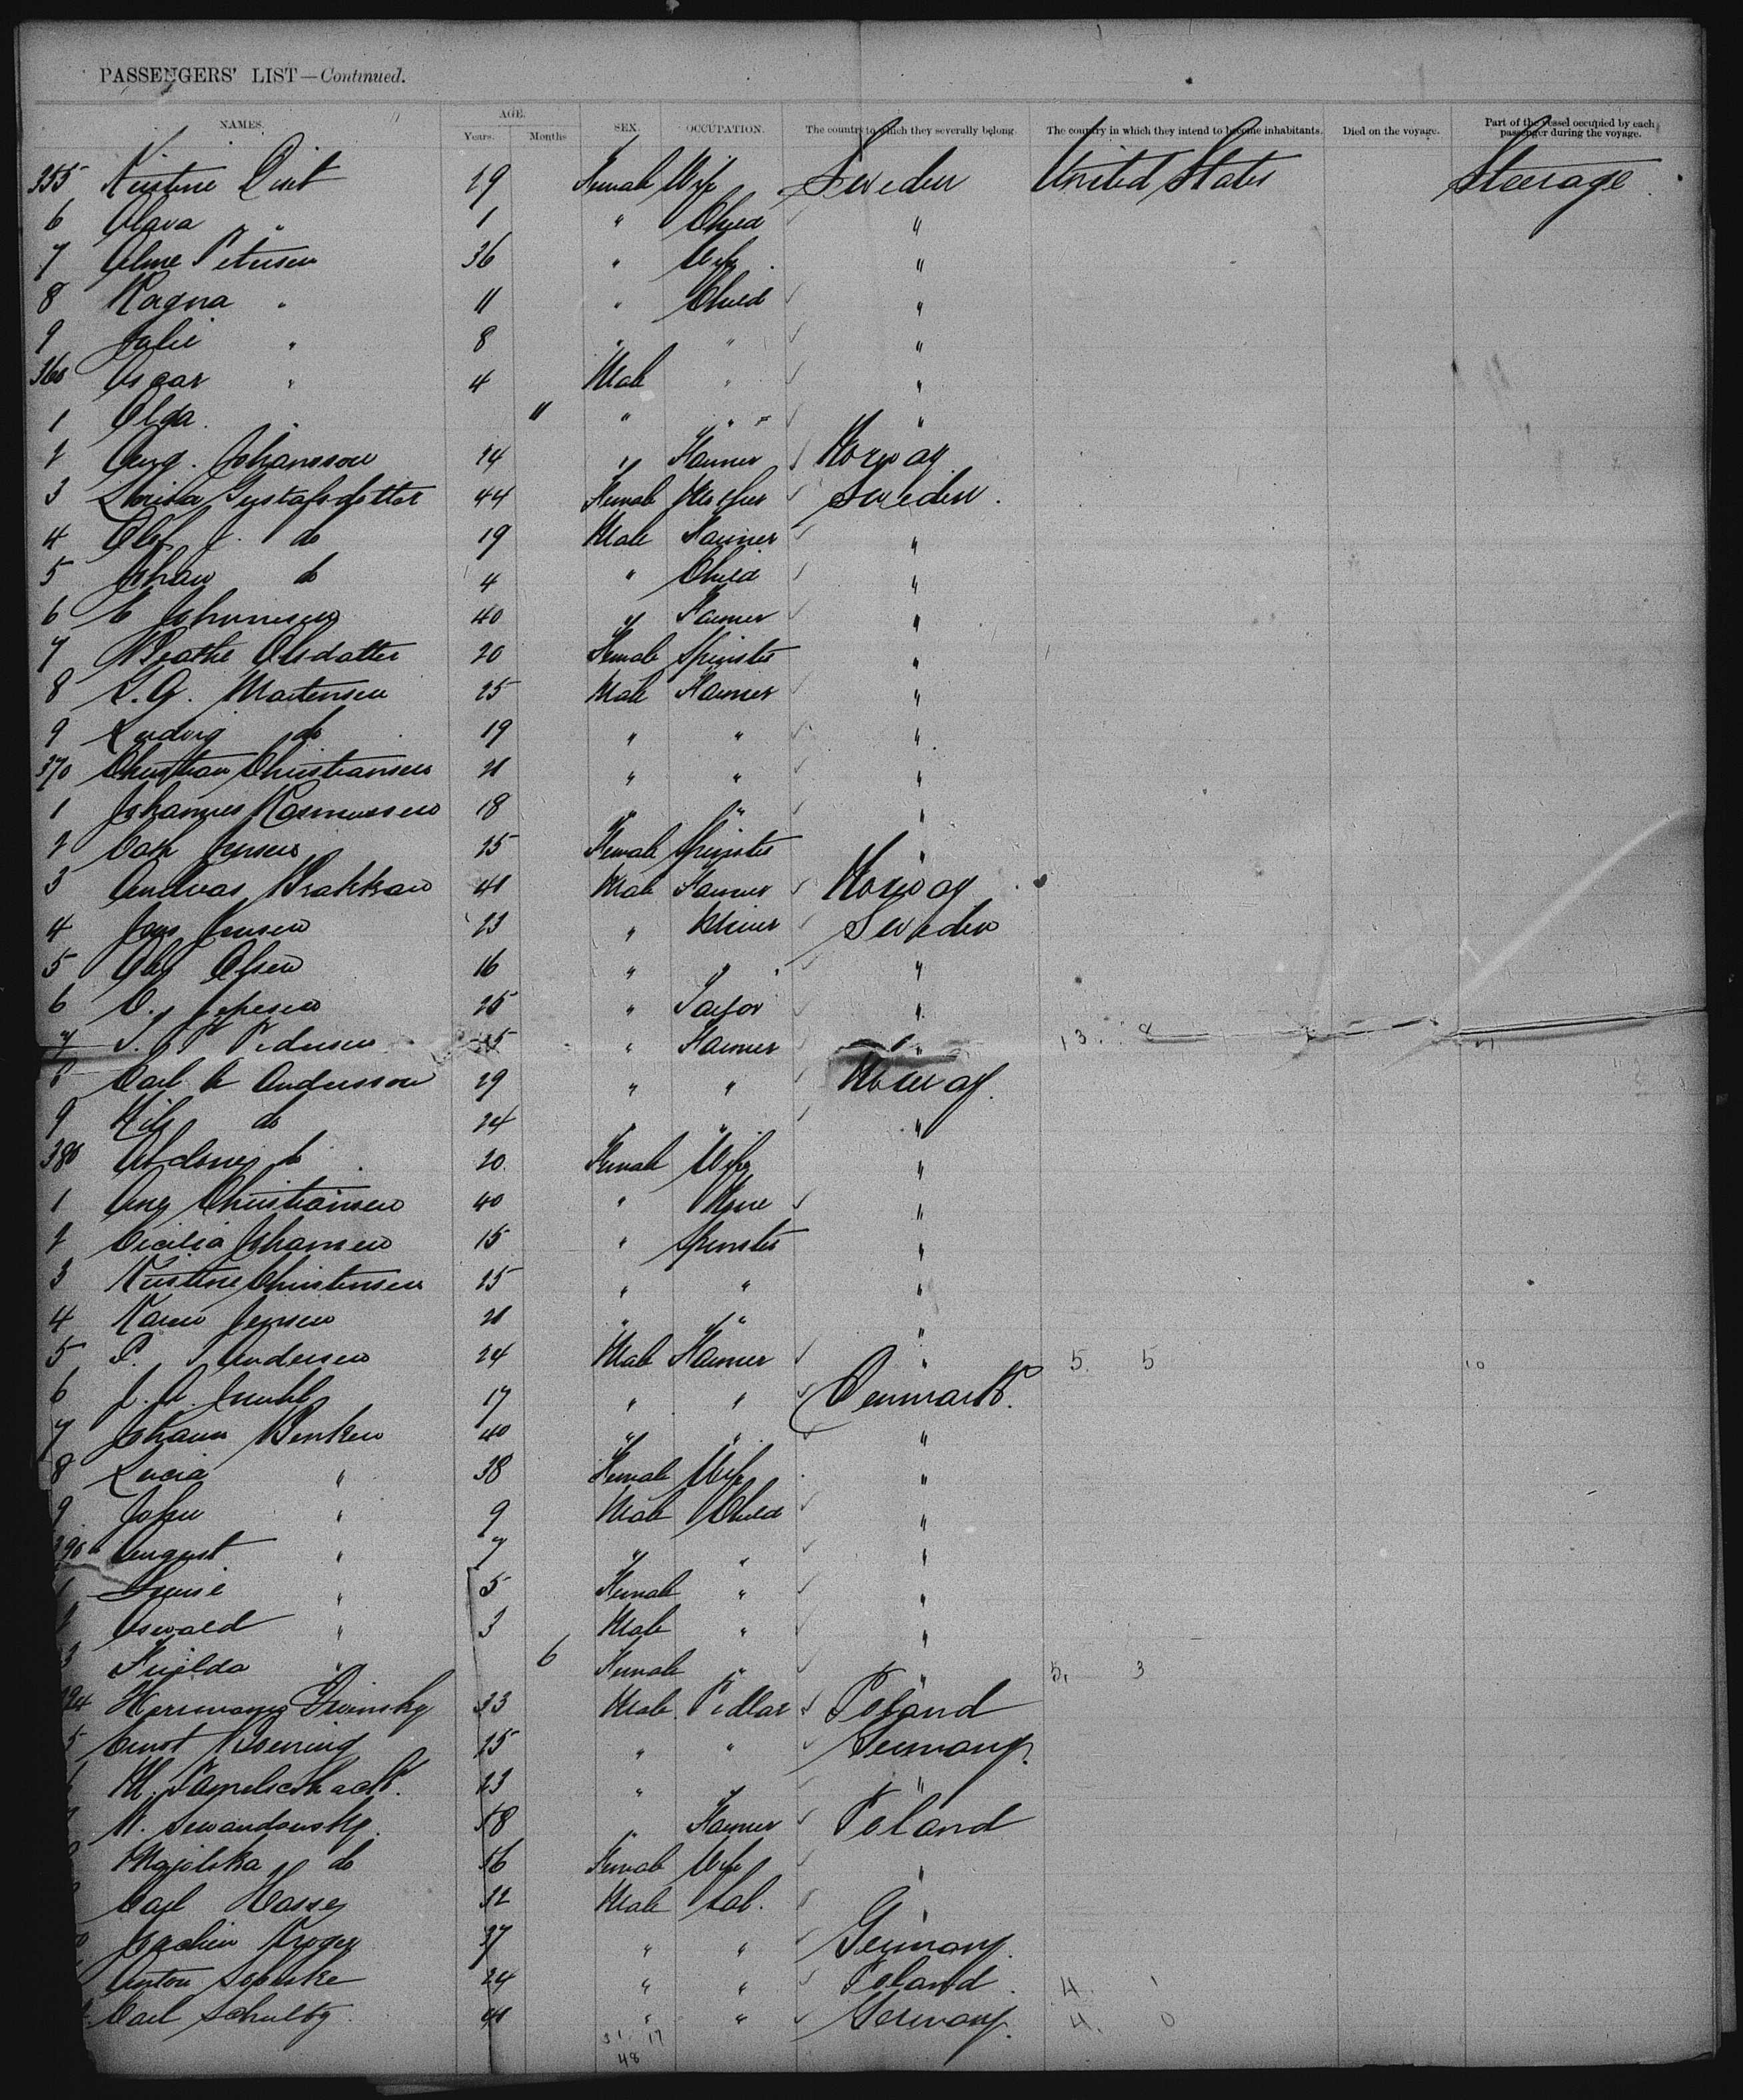 PASSENGERS' LIST—Continued.
NAMES. AGE. SEX. OCCUPATION. The country to which they severally belong. The country in which they intend to become inhabitants. Died on the voyage. Part of the vessel occupied by each passenger during the voyage.
Years. Months
355 Kirstine 29 Female Wife Sweden United States Steerage
6 Olava " 1 " Child "
7 Petersen 36 " Wife "
8 Ragna " 11 " Child "
9 Julie " 8 " " "
360 Oscar " 4 Male " "
1 Olga " 11 " " "
2 Aug. Johansson 24 " Farmer Norway
3 Gustafsdotter 44 Female Mother Sweden
4 Olof J. do 19 Male Farmer "
5 Johan do 4 " Child "
6 40 " Farmer "
7 Beathe Olsdatter 20 Female Spinster "
8 Martensen 25 Male Farmer "
9 Ludvig do 19 " " "
370 Christian Christiansen 21 " " "
1 Johannes Rasmussen 18 " " "
2 Jensen 25 Female Spinster "
3 Andreas Brakkan 41 Male Farmer Norway
4 Jens Jensen 23 " Miner Sweden
5 Olsen 16 " " "
6 Jepesen 25 " Taylor "
7 Pedersen 25 " Farmer " 13. 8
8 Carl A Andersson 29 " " Norway
9 Nils do 24 " " "
380 do 20 Female Wife "
1 Christiansen 40 " "
2 Cicilia Johansen 15 " Spinster "
3 Kirstine Christensen 25 " " "
4 Karen Jensen 21 " " "
5 P. Andersen 24 Male Farmer " 5. 5 10
6 J. A. 17 " " Denmark.
7 Johann Benken 40 " " "
8 Lucia " 38 Female Wife "
9 John " 9 Male Child "
390 August " 7 " " "
1 Louise " 5 Female " "
2 Oswald " 3 Male " "
3 " 6 Female " " 5. 3
394 33 Male Pedlar Poland
5 Ernst 25 " " Germany.
M. 23 " "
Lewandowsky. 58 " Farmer Poland
do 56 Female Wife "
Carl 32 Male Lab. "
Joachim Kroger 37 " " Germany.
Anton 24 " " Poland. 4. 1
Carl Schultz 41 " " Germany. 4. 0
31 17
48